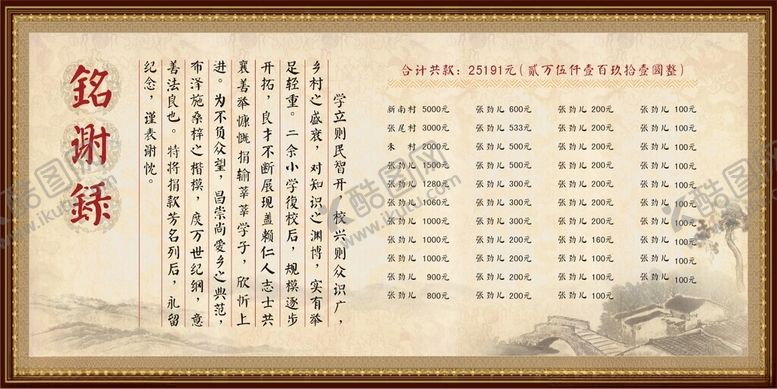 銘谢録
学立则民智开，校兴则众识广，
乡村之盛衰，对知识之渊博，实有举
足轻重。二余小學復校后，规模逐步
开拓，良才不断展现盖赖仁人志士共
襄善举慷慨捐输莘莘学子，欣忻上
进。为不负众望，昌崇尚爱乡之典范，
布泽施桑梓之楷模，度万世纪纲，意
善法良也。特将捐款芳名列后，永留
纪念，谨表谢忱。
合计共款：25191元（贰万伍仟壹百玖拾壹圆整）
新南村 5000元 张劲儿 600元 张劲儿 200元 张劲儿 100元
张尾村 3000元 张劲儿 533元 张劲儿 200元 张劲儿 100元
朱 村 2000元 张劲儿 500元 张劲儿 200元 张劲儿 100元
张劲儿 1500元 张劲儿 500元 张劲儿 200元 张劲儿 100元
张劲儿 1280元 张劲儿 300元 张劲儿 200元 张劲儿 100元
张劲儿 1060元 张劲儿 300元 张劲儿 200元 张劲儿 100元
张劲儿 1000元 张劲儿 300元 张劲儿 200元 张劲儿 100元
张劲儿 1000元 张劲儿 200元 张劲儿 160元 张劲儿 100元
张劲儿 1000元 张劲儿 200元 张劲儿 100元 张劲儿 100元
张劲儿 900元 张劲儿 200元 张劲儿 100元 张劲儿 100元
张劲儿 800元 张劲儿 200元 张劲儿 100元